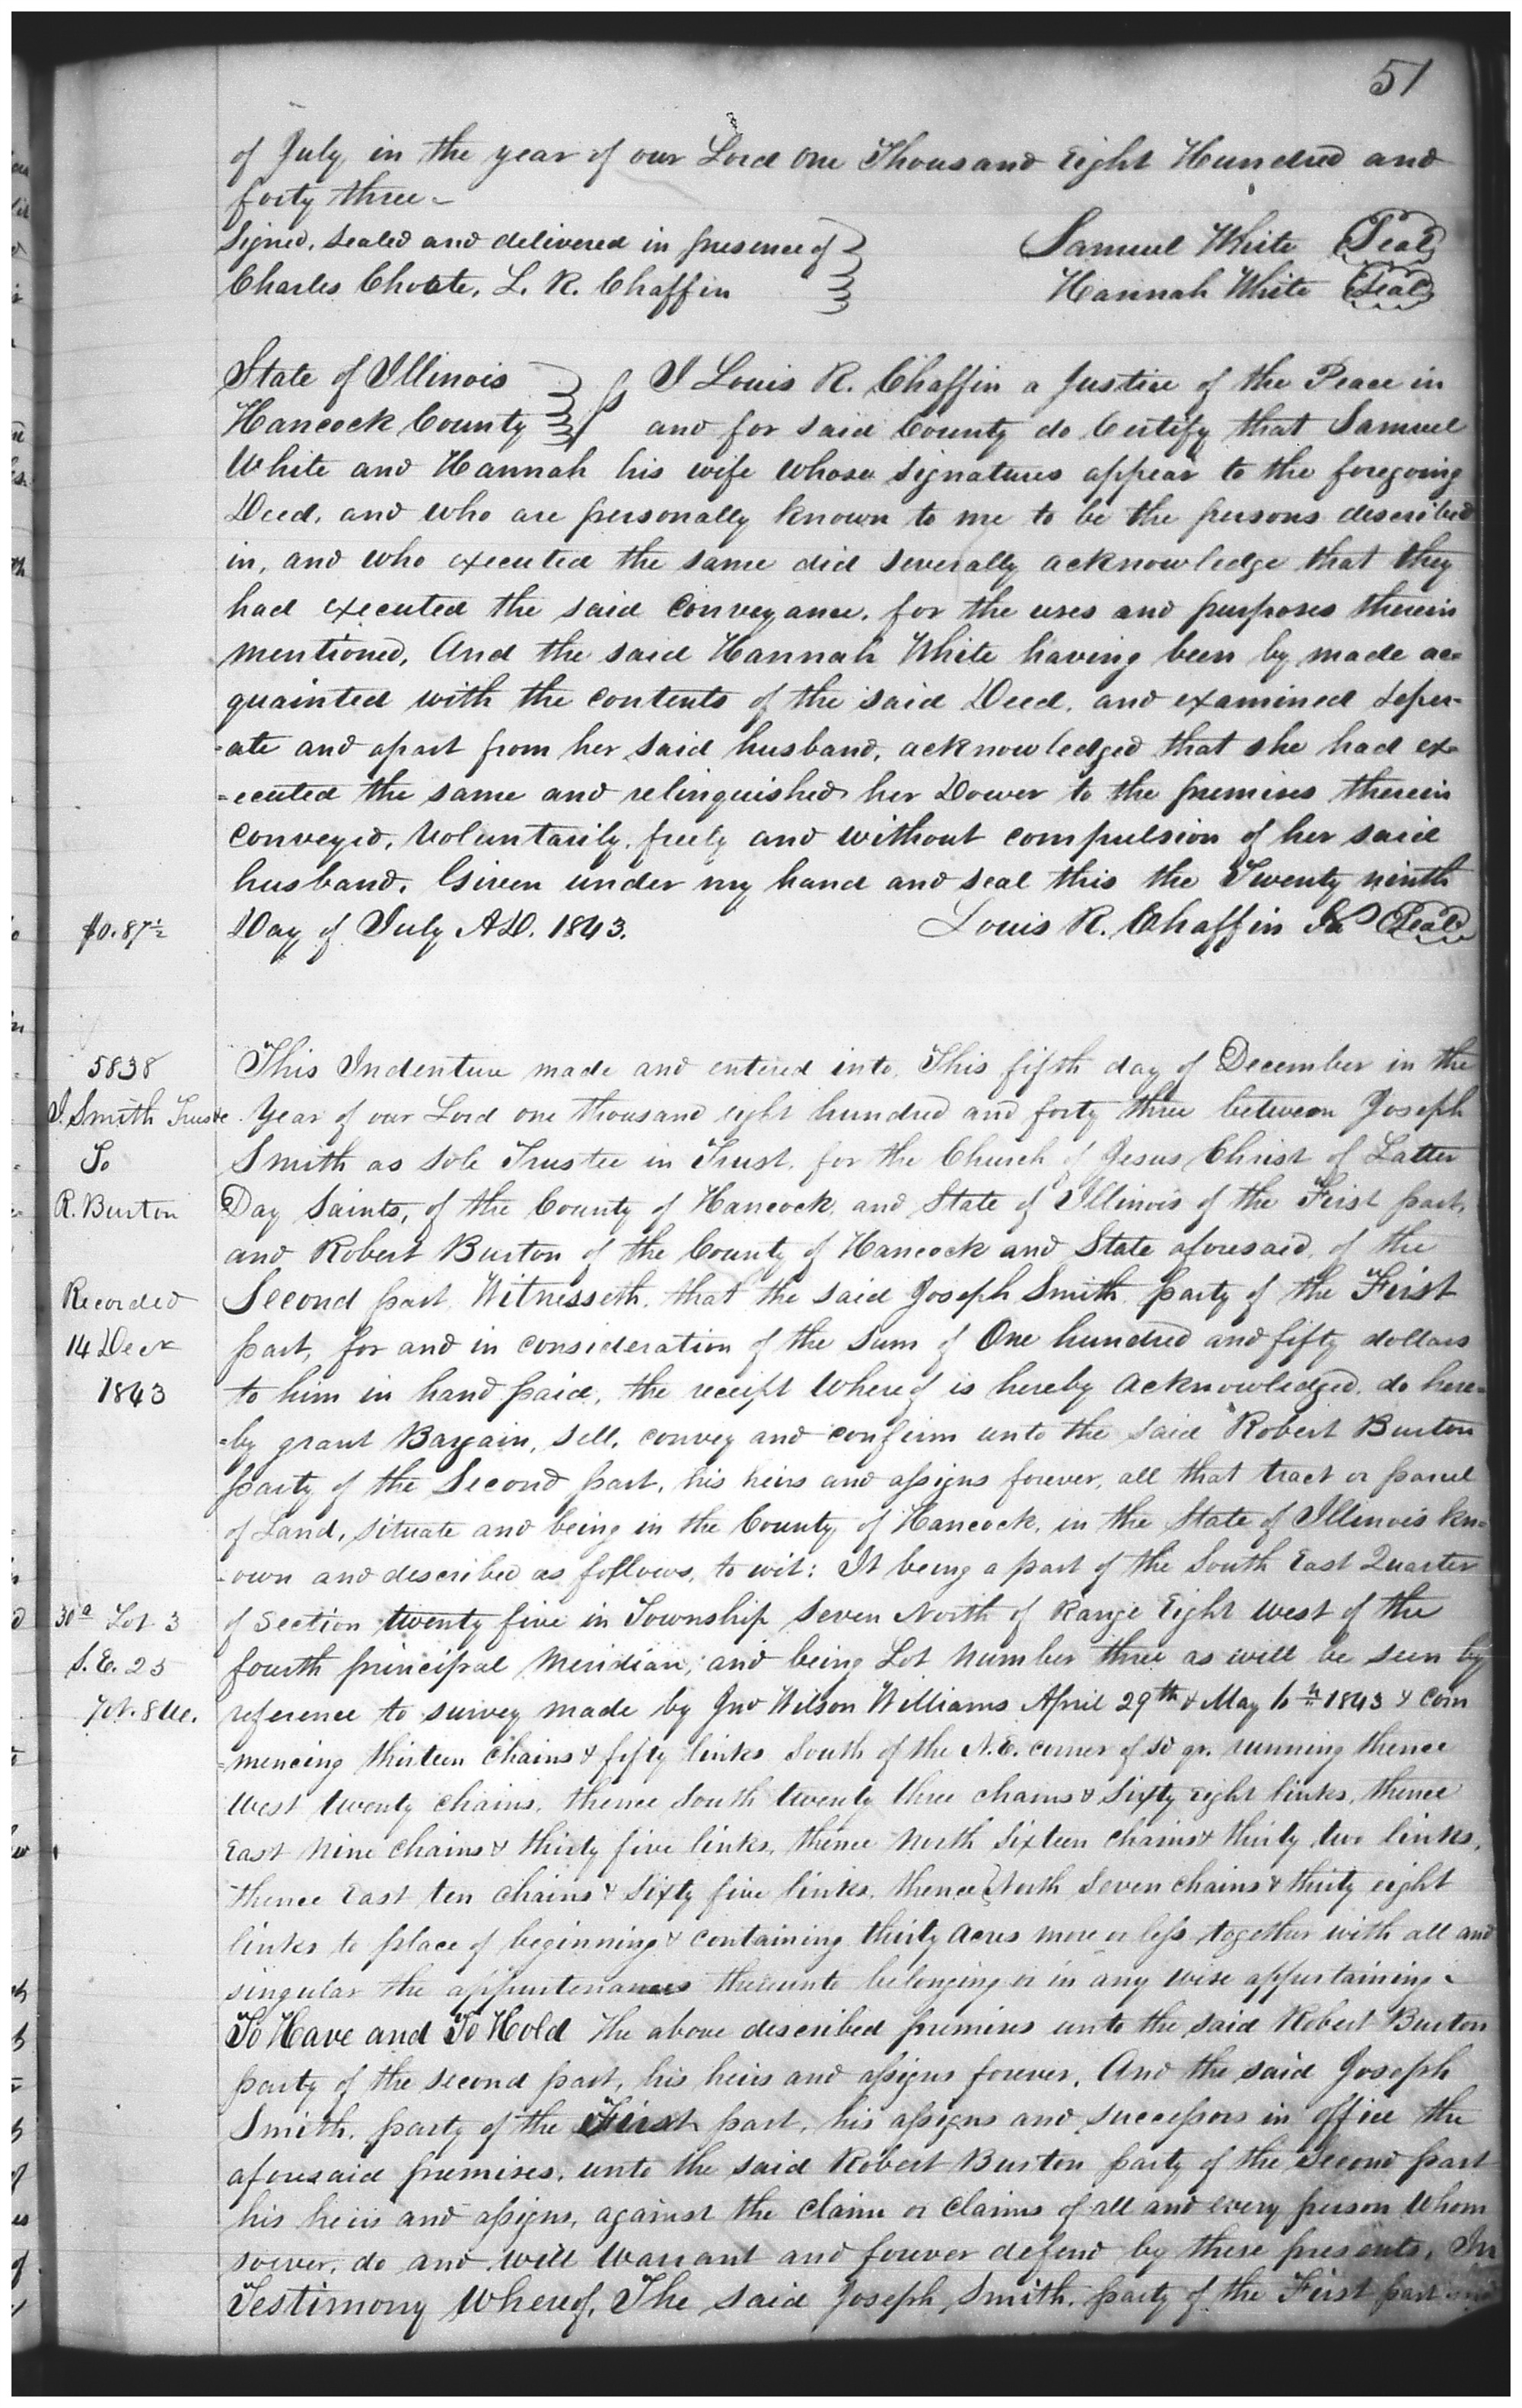 51
of July, in the year of our Lord one Thousand Eight Hundred and
forty three -
Signed, Sealed and delivered in presence of Samuel White (Seal)
Charles Choate, L. R. Chaffin Hannah White (Seal)
State of Illinois I Louis R. Chaffin a Justice of the Peace in
Hancock County and for said County do Certify that Samuel
White and Hannah his wife whose signatures appear to the foregoing
Deed, and who are personally known to me to be the persons described
in, and who executed the same did severally acknowledge that they
had executed the said Conveyance, for the uses and purposes therein
mentioned, And the said Hannah White having been by made ac=
quainted with the contents of the said Deed, and examined seper-
-ate and apart from her said husband, acknowledged that she had ex=
=ecuted the same and relinquished her Dower to the premises therein
conveyed, Voluntarily, freely and without compulsion of her said
husband. Given under my hand and seal this the Twenty ninth
$0.87½ Day of July A.D. 1843. Louis R. Chaffin (Seal)
5838 This Indenture made and entered into, This fifth day of December in the
J. Smith Trustee Year of our Lord one thousand eight hundred and forty three between Joseph
To Smith as Sole Trustee in Trust, for the Church of Jesus Christ of Latter
R. Burton Day Saints, of the County of Hancock, and State of Illinois of the First part,
and Robert Burton of the County of Hancock and State aforesaid, of the
Recorded Second part, Witnesseth, that the said Joseph Smith, party of the First
14 Decr part, for and in consideration of the sum of One hundred and fifty dollars
1843 to him in hand paid, the receipt Whereof is hereby acknowledged, do here=
=by grant Bargain, Sell, convey and confirm unto the said Robert Burton
party of the Second part, his heirs and assigns forever, all that tract or parcel
of Land, situate and being in the County, of Hancock, in the State of Illinois kn=
-own and described as follows, to wit: It being a part of the South East Quarter
30a Lot 3 of Section twenty five in Township Seven North of Range Eight West of the
S.E. 25 fourth principal Meridian; and being Lot Number three as will be seen by
7N. 8W. reference to survey made by Jno Wilson Williams April 29th & May 10th 1843 & com
=mencing thirteen Chains & fifty links South of the N.E. corner of sd qr. running thence
West twenty Chains, thence South twenty three chains & sixty eight links, thence
East nine chains & thirty five links, thence North Sixteen Chains & thirty two links,
thence East ten chains & Sixty five links, thence North Seven chains & thirty eight
links to place of beginning & containing thirty Acres more or less together with all and
singular the appurtenances thereunto belonging or in any wise appertaining -
To Have and To Hold the above described premises unto the said Robert Burton
party of the second part, his heirs and assigns forever, And the said Joseph
Smith, party of the First part, his assigns and successors in office the
aforesaid premises, unto the said Robert Burton party of the Second part
his heirs and assigns, against the claim or claims of all and every person Whom
soever, do and will Warrant and forever defend by these presents, In
Testimony Whereof, The said Joseph Smith, party of the First part